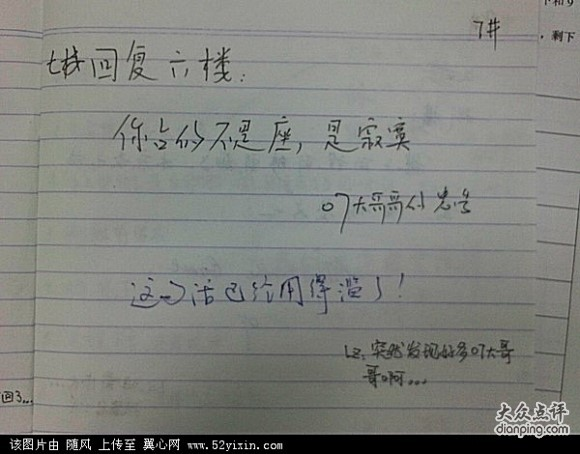 7井
七楼回复六楼：
你占的不是座，是寂寞
07大哥哥
这句话已经用得滥了！
LZ：突然发现好多07大哥
哥啊...
下和9
，剩下
回3...
大众点评
dianping.com
该图片由 随风 上传至 翼心网 www.52yixin.com